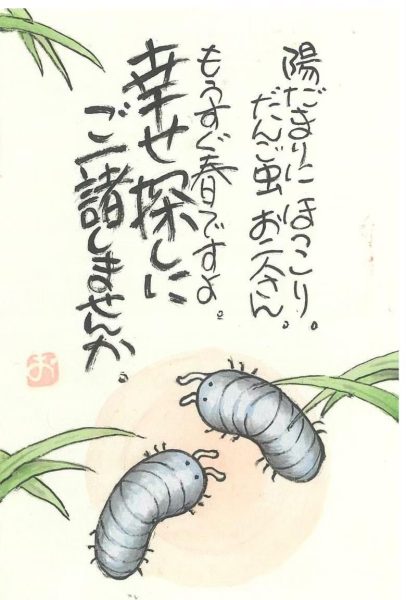 陽だまりに ほっこり。
だんご虫 お二人さん。
もうすぐ春ですよ。
幸せ探しに
ご一諸しませんか。
お